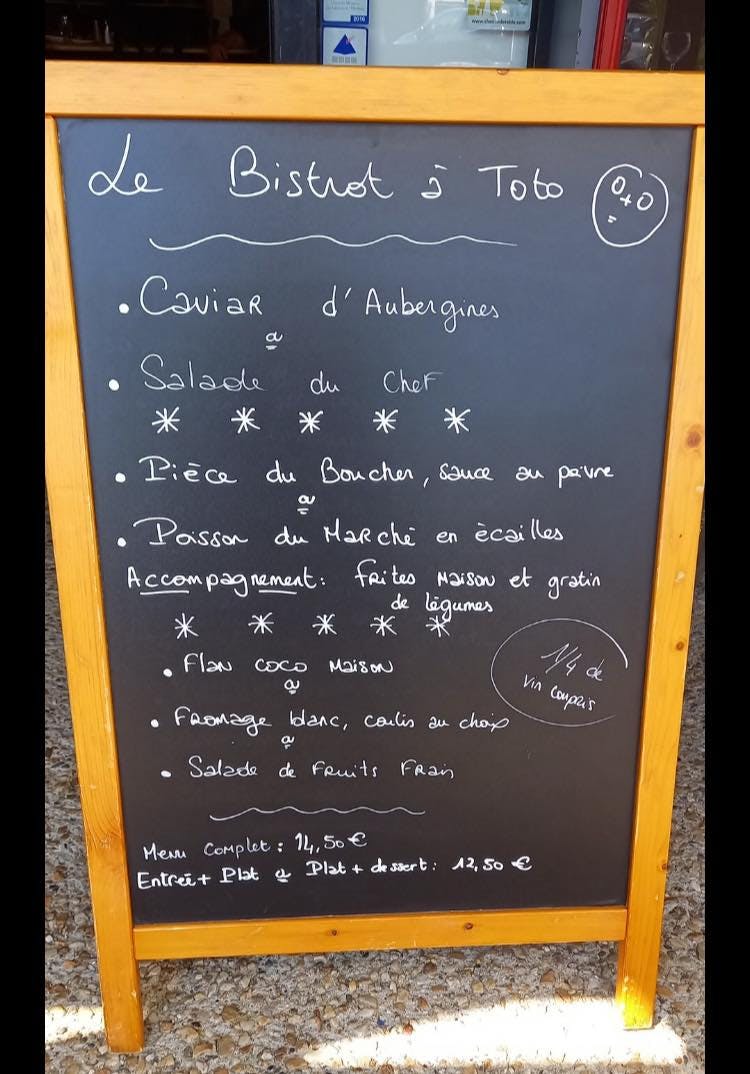 Le Bistrot à Toto
• Caviar d'Aubergines
ou
• Salade du Chef
* * * * *
• Pièce du Boucher, sauce au poivre
ou
• Poisson du Marché en écailles
Accompagnement: frites Maison et gratin
de légumes
* * * * *
• Flan coco Maison
ou
• Fromage blanc, coulis au choix
ou
• Salade de Fruits Frais
1/4 de
vin compris
Menu Complet : 14,50 €
Entrée + Plat ou Plat + dessert : 12,50 €